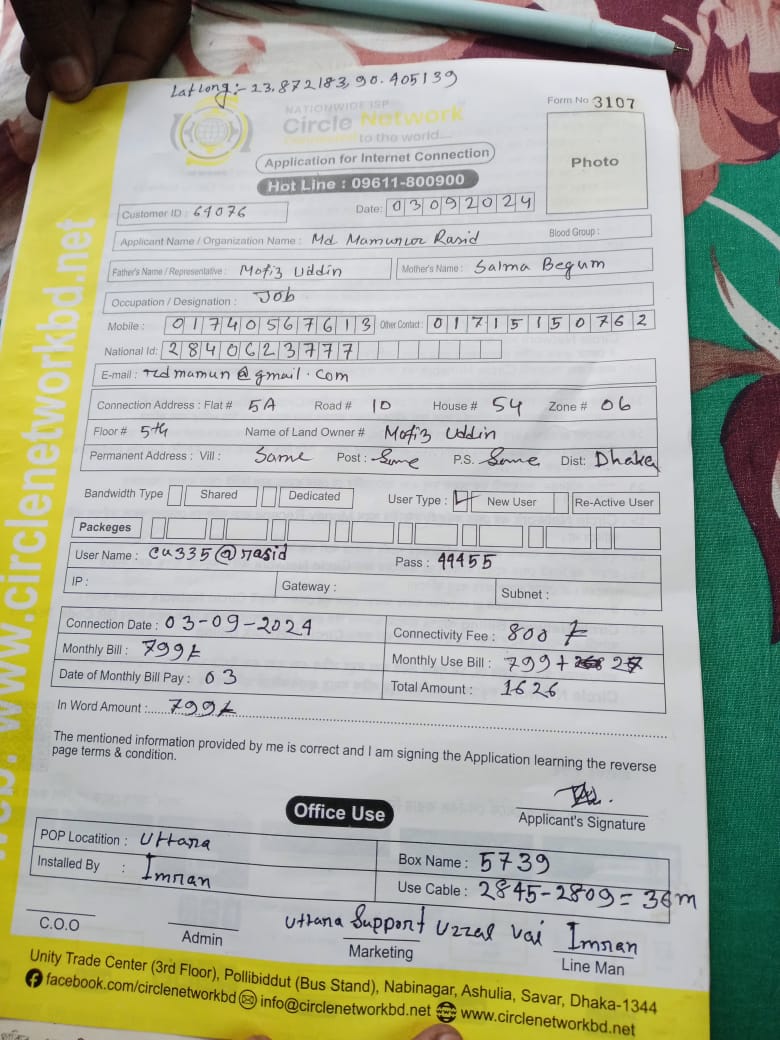 Lat long:- 23.872183, 90.405139
NATIONWIDE ISP
Circle Network
Connected to the world...
Form No 3107
Application for Internet Connection
Photo
Hot Line : 09611-800900
Customer ID : 61076 Date: 03092024
Applicant Name / Organization Name : Md Mamunur Rasid Blood Group :
Father's Name / Representative : Mofiz Uddin Mother's Name : Salma Begum
Occupation / Designation : Job
Mobile : 01740567613 Other Contact : 01715150762
National Id: 2840623777
E-mail : rdmamun@gmail.com
Connection Address : Flat # 5A Road # 10 House # 54 Zone # 06
Floor # 5th Name of Land Owner # Mofiz Uddin
Permanent Address : Vill : Same Post : Same P.S. Same Dist: Dhaka
Bandwidth Type Shared Dedicated User Type : New User Re-Active User
Packeges
User Name : cu335@rasid Pass : 44455
IP : Gateway : Subnet :
Connection Date : 03-09-2024 Connectivity Fee : 800/-
Monthly Bill : 799/- Monthly Use Bill : 799+ 27
Date of Monthly Bill Pay : 03 Total Amount : 1626
In Word Amount : 799/-
The mentioned information provided by me is correct and I am signing the Application learning the reverse
page terms & condition.
Applicant's Signature
Office Use
POP Locatition : Uttara Box Name : 5739
Installed By : Imran Use Cable : 2845-2809=36m
uttara Support Uzzal vai Imran
C.O.O Admin Marketing Line Man
Unity Trade Center (3rd Floor), Pollibiddut (Bus Stand), Nabinagar, Ashulia, Savar, Dhaka-1344
facebook.com/circlenetworkbd info@circlenetworkbd.net www.circlenetworkbd.net
web: www.circlenetworkbd.net